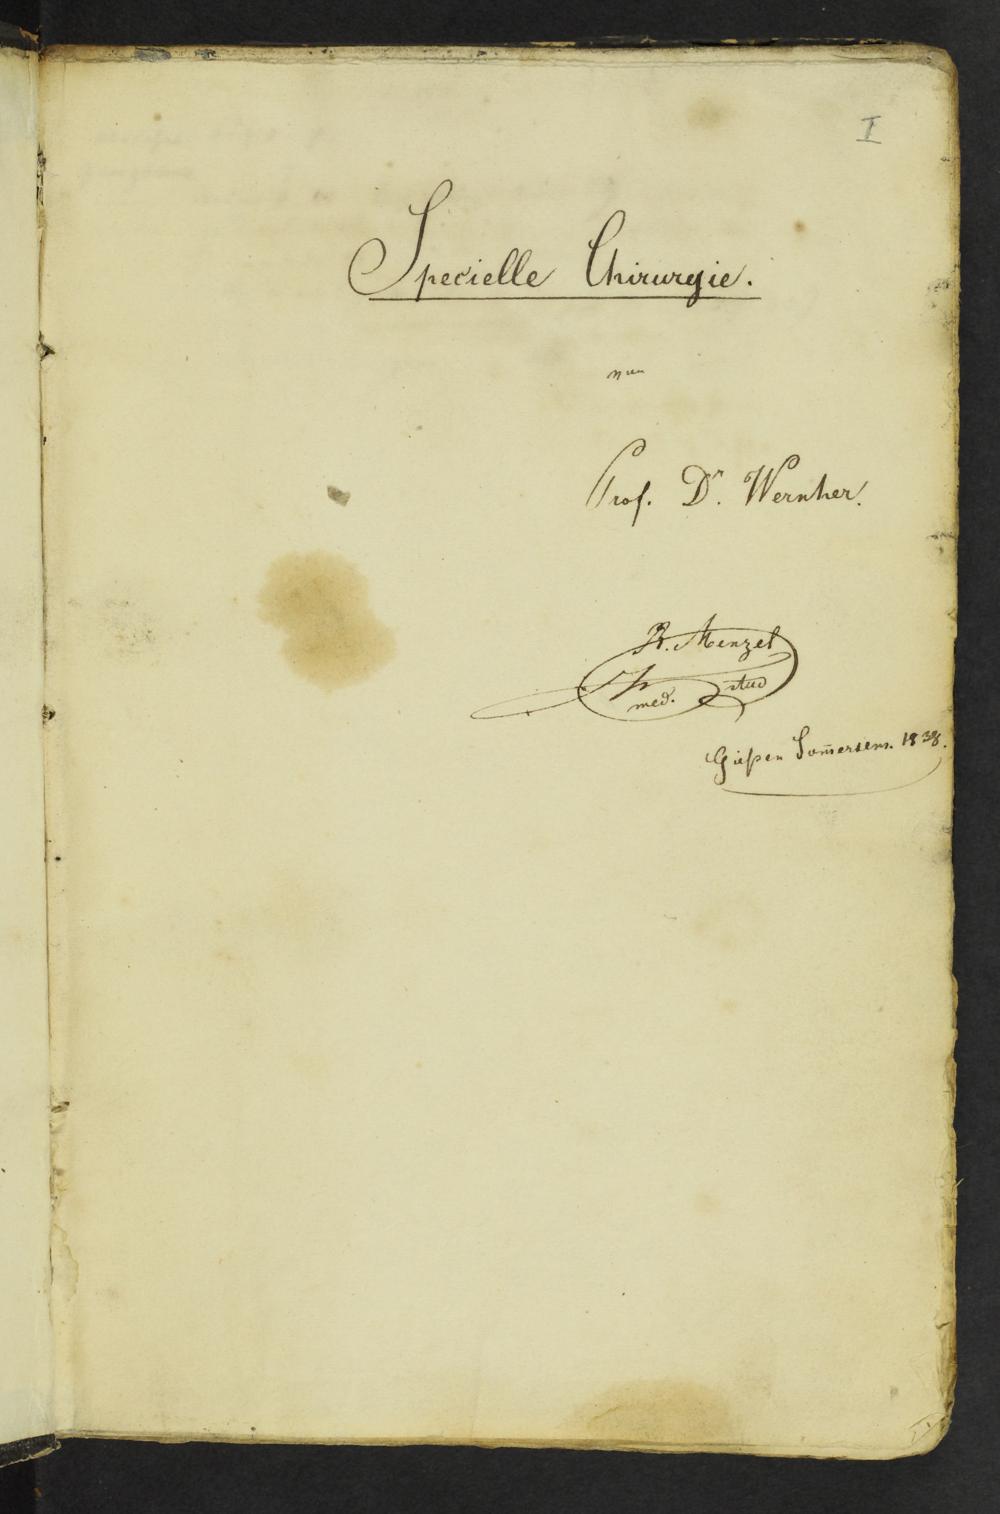 I
Specielle Chirurgie.
von
Prof. Dr. Wernher.
R. Menzel
stud
med.
Gießen Som̄ersem. 1838.